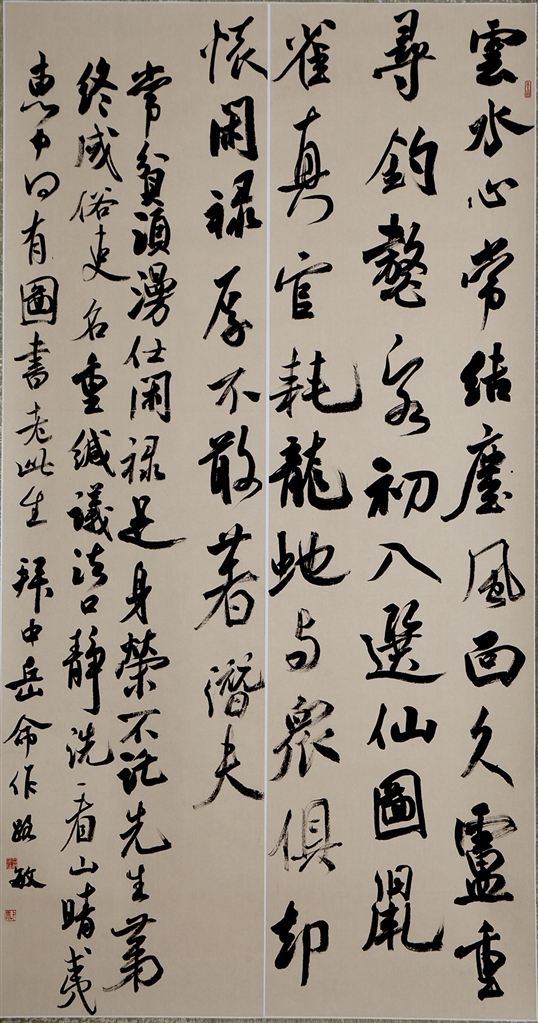 雲水心常結塵風面久盧重
尋釣鼇客初入選仙圖鼠
雀真官耗龍蛇与眾俱却
懷閑祿厚不敢著潛夫
常貧須漫仕閑祿是身榮不託先生第
終成俗吏名重緘議法口靜洗看山晴夷
惠中何有圖書老此生 拜中岳命作 路敏